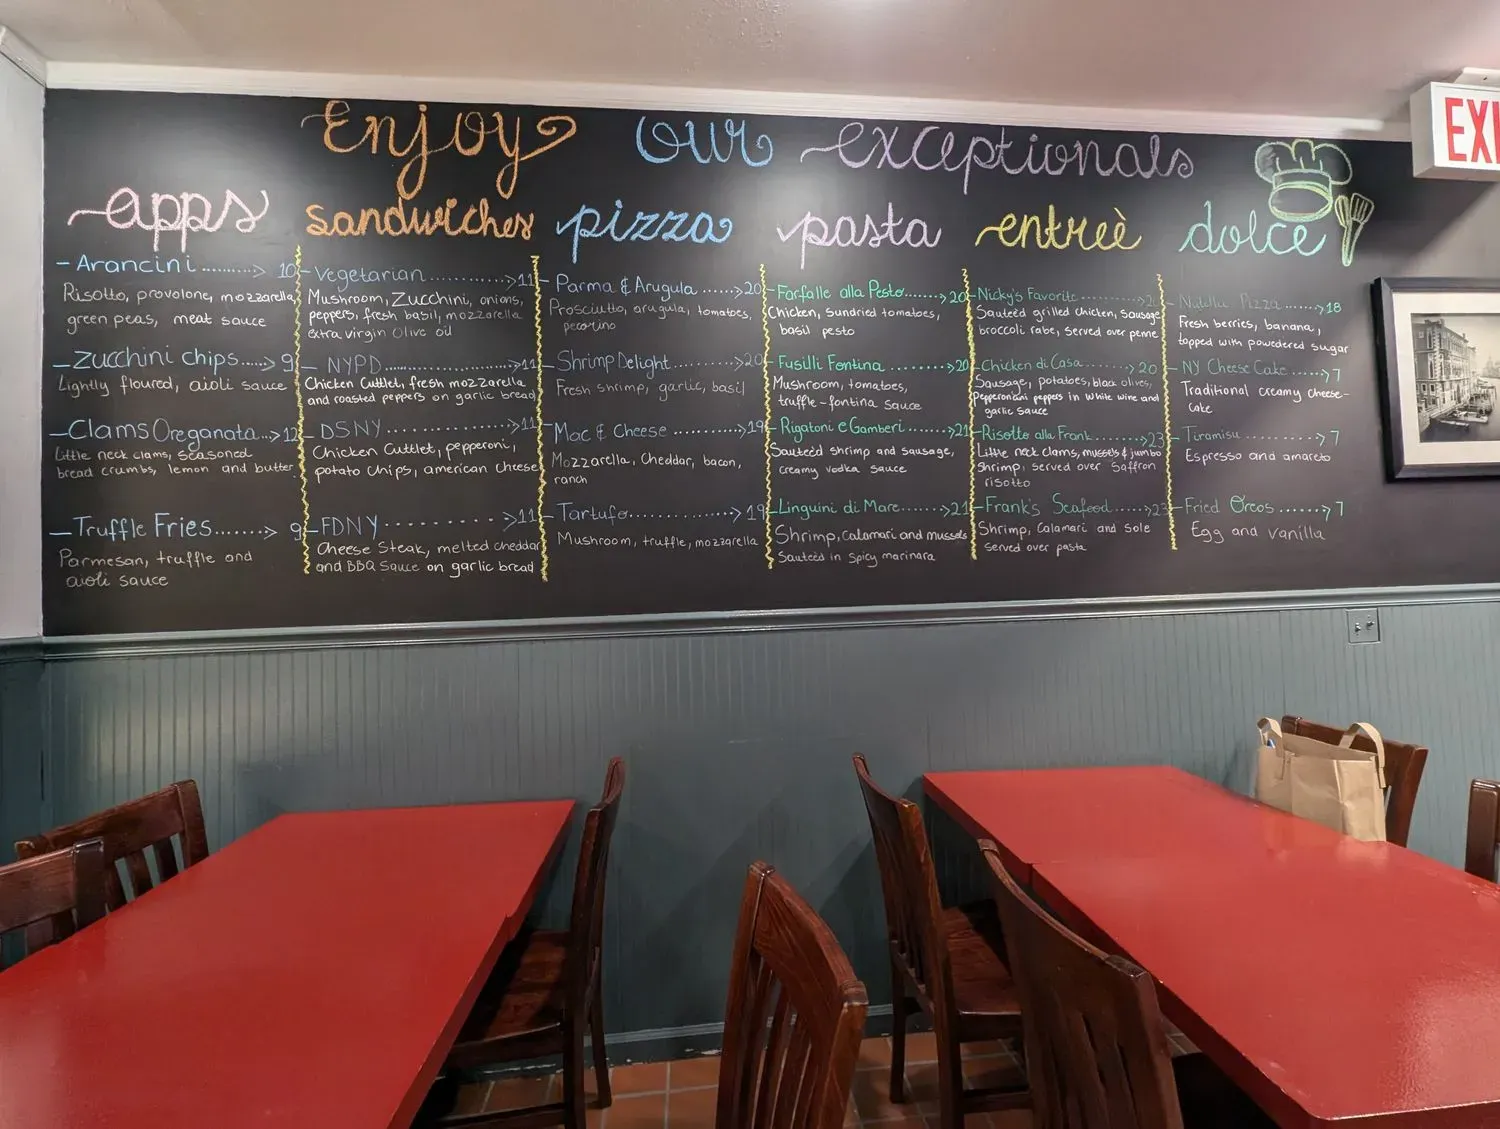 Enjoy our exceptionals
EXI
apps
- Arancini..........> 10
Risotto, provolone, mozzarella,
green peas, meat sauce
- Zucchini chips......> 9
Lightly floured, aioli sauce
- Clams Oreganata...> 12
Little neck clams, seasoned
bread crumbs, lemon and butter
- Truffle Fries.......> 9
Parmesan, truffle and
aioli sauce
sandwiches
- Vegetarian..........>11
Mushroom, Zucchini, onions,
peppers, fresh basil, mozzarella
extra virgin olive oil
- NYPD..................>11
Chicken Cuttlet, fresh mozzarella
and roasted peppers on garlic bread
- DSNY................>11
Chicken Cuttlet, pepperoni,
potato chips, american cheese
- FDNY..........>11
Cheese Steak, melted cheddar
and BBQ Sauce on garlic bread
pizza
- Parma & Arugula......>20
Prosciutto, arugula, tomatoes,
pecorino
- Shrimp Delight.........>20
Fresh shrimp, garlic, basil
- Mac & Cheese............>19
Mozzarella, Cheddar, bacon,
ranch
- Tartufo................>19
Mushroom, truffle, mozzarella
pasta
- Farfalle alla Pesto.......>20
Chicken, sundried tomatoes,
basil pesto
- Fusilli Fontina........>20
Mushroom, tomatoes,
truffle-fontina sauce
- Rigatoni e Gamberi........>21
Sauteèd shrimp and sausage,
creamy vodka sauce
- Linguini di Mare.......>21
Shrimp, calamari and mussels
Sauteèd in spicy marinara
entreè
- Nicky's Favorite............>20
Sauteèd grilled chicken, sausage
broccoli rabe, served over penne
- Chicken di Casa..........> 20
Sausage, potatoes, black olives,
pepperoncini peppers in white wine and
garlic sauce
- Risotto alla Frank.......>23
Little neck clams, mussels & jumbo
shrimp, served over saffron
risotto
- Frank's Seafood........>23
Shrimp, Calamari and sole
served over pasta
dolce
- Nutella Pizza......>18
Fresh berries, banana,
topped with powdered sugar
- NY Cheese Cake......>7
Traditional creamy cheese-
cake
- Tiramisu...........>7
Espresso and amareto
- Fried Oreos.......>7
Egg and vanilla